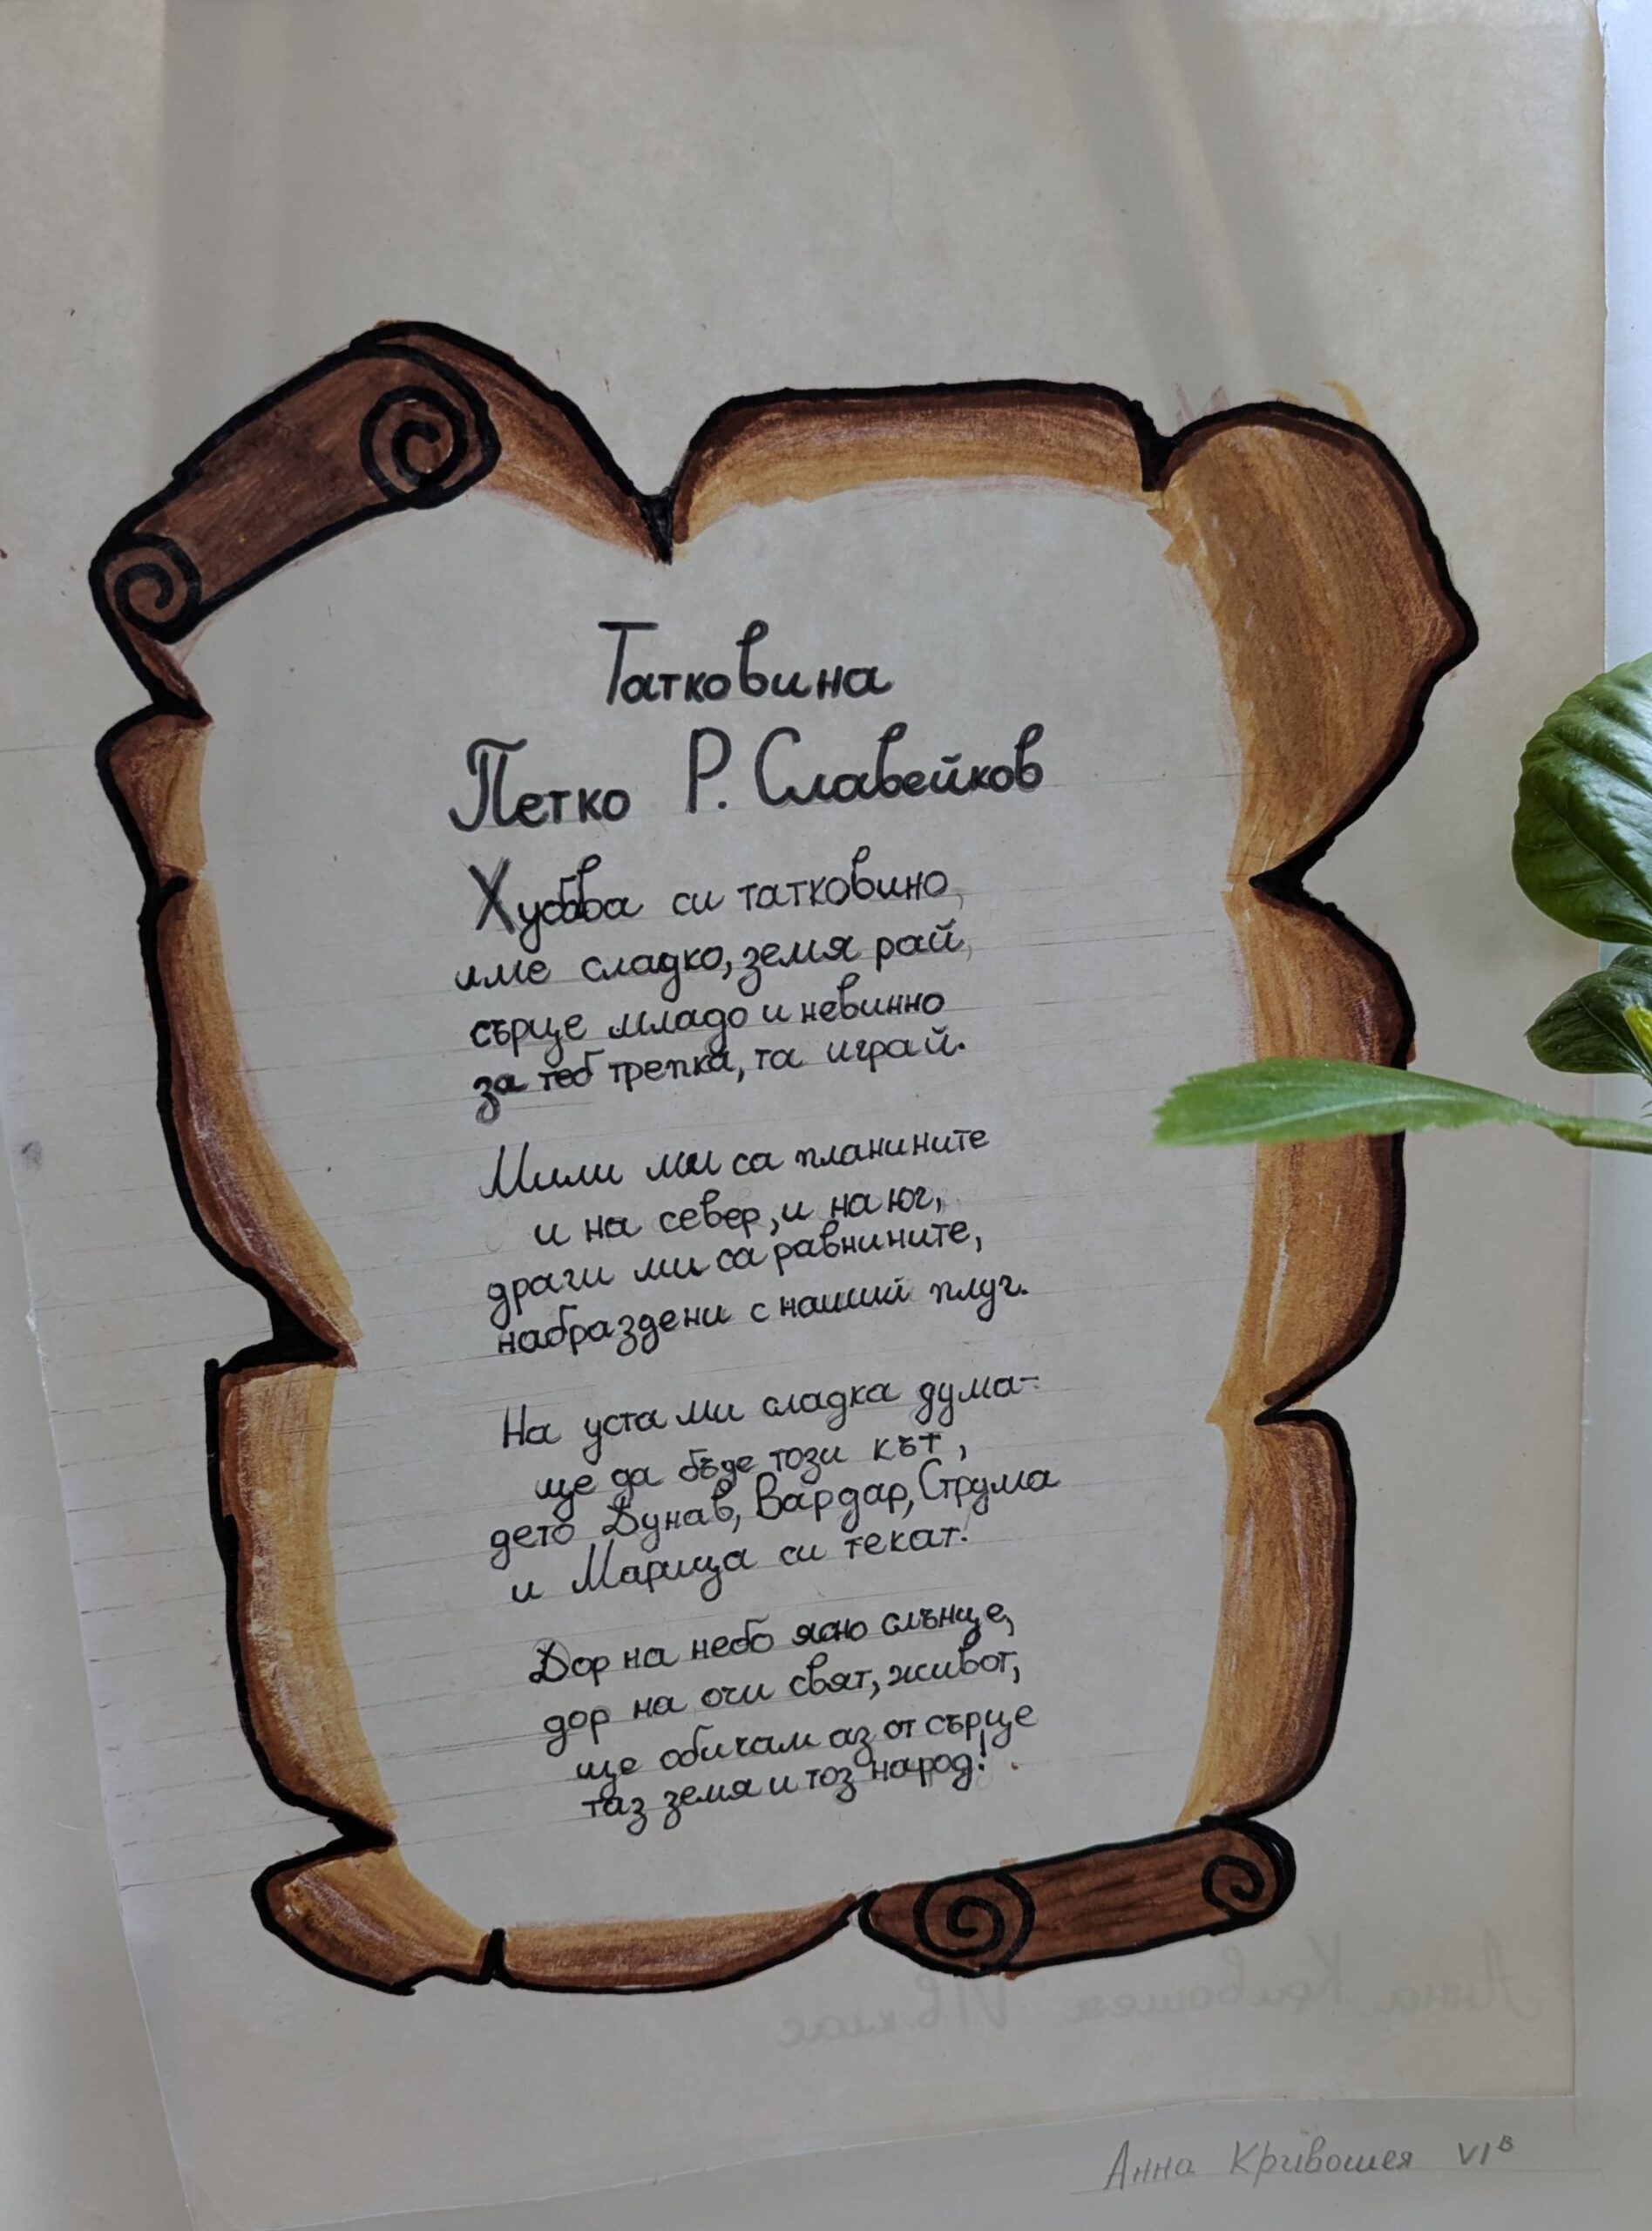 Татковина
Петко Р. Славейков
Хубава си татковино,
име сладко, земя рай,
сърце младо и невинно
за теб трепка, та играй.
Мили ми са планините
и на север, и на юг,
драги ми са равнините,
набраздени с наший плуг.
На уста ми сладка дума-
ще да бъде този кът,
дето Дунав, Вардар, Струма
и Марица си текат.
Дор на небо ясно слънце,
дор на очи свят, живот,
ще обичам аз от сърце
таз земя и тоз народ!
Анна Кривошея VI в клас
Анна Кривошея VI в